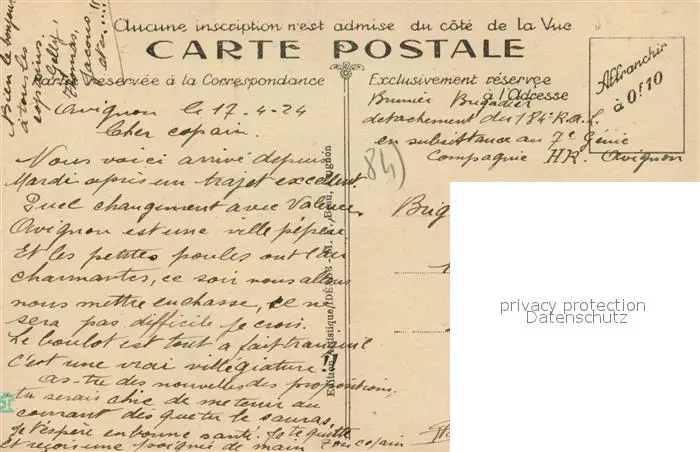 Aucune inscription n'est admise du côté de la Vue
CARTE POSTALE
Partie réservée à la Correspondance
Exclusivement réservée
à l'Adresse
Affranchir
à 0f10
Bien le bonjour
à tous les
copains.
Golly,
Thomas,
Avignon le 17-4-24
Cher copain.
Nous voici arrivé depuis
Mardi après un trajet excellent.
Quel changement avec Valence.
Avignon est une ville pépère
Et les petites poules ont l'air
charmantes, ce soir nous allons
nous mettre en chasse, ce ne
sera pas difficile je crois.
Le boulot est tout à fait tranquil
C'est une vrai villégiature !!
as-tu des nouvelles des propositions,
tu serais chic de me tenir au
courant dès que tu le sauras,
Je t'espère en bonne santé. Je te quitte
Et reçois une poignée de main Ton copain
Edition Artistique "IDÉALE"
Brunier Brigadier
détachement du 184e R.A.L.
en subsistance au 7e Génie
Compagnie HR. Avignon
84)
Brig
privacy protection
Datenschutz